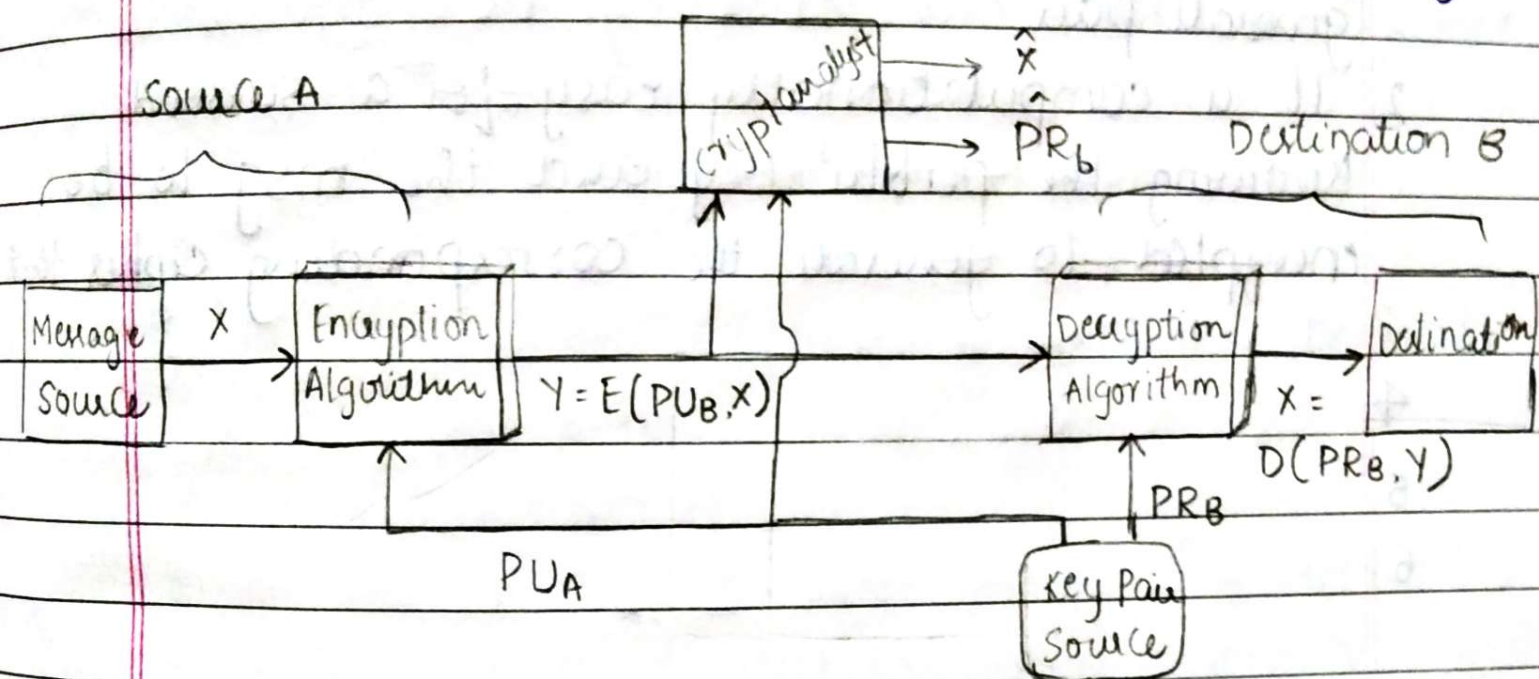 Source A
Cryptanalyst
X̂
P̂Rb
Destination B
Message
Source
X
Encryption
Algorithm
Y = E(PUB, X)
Decryption
Algorithm
X =
D(PRB, Y)
Destination
PRB
PUA
Key Pair
Source